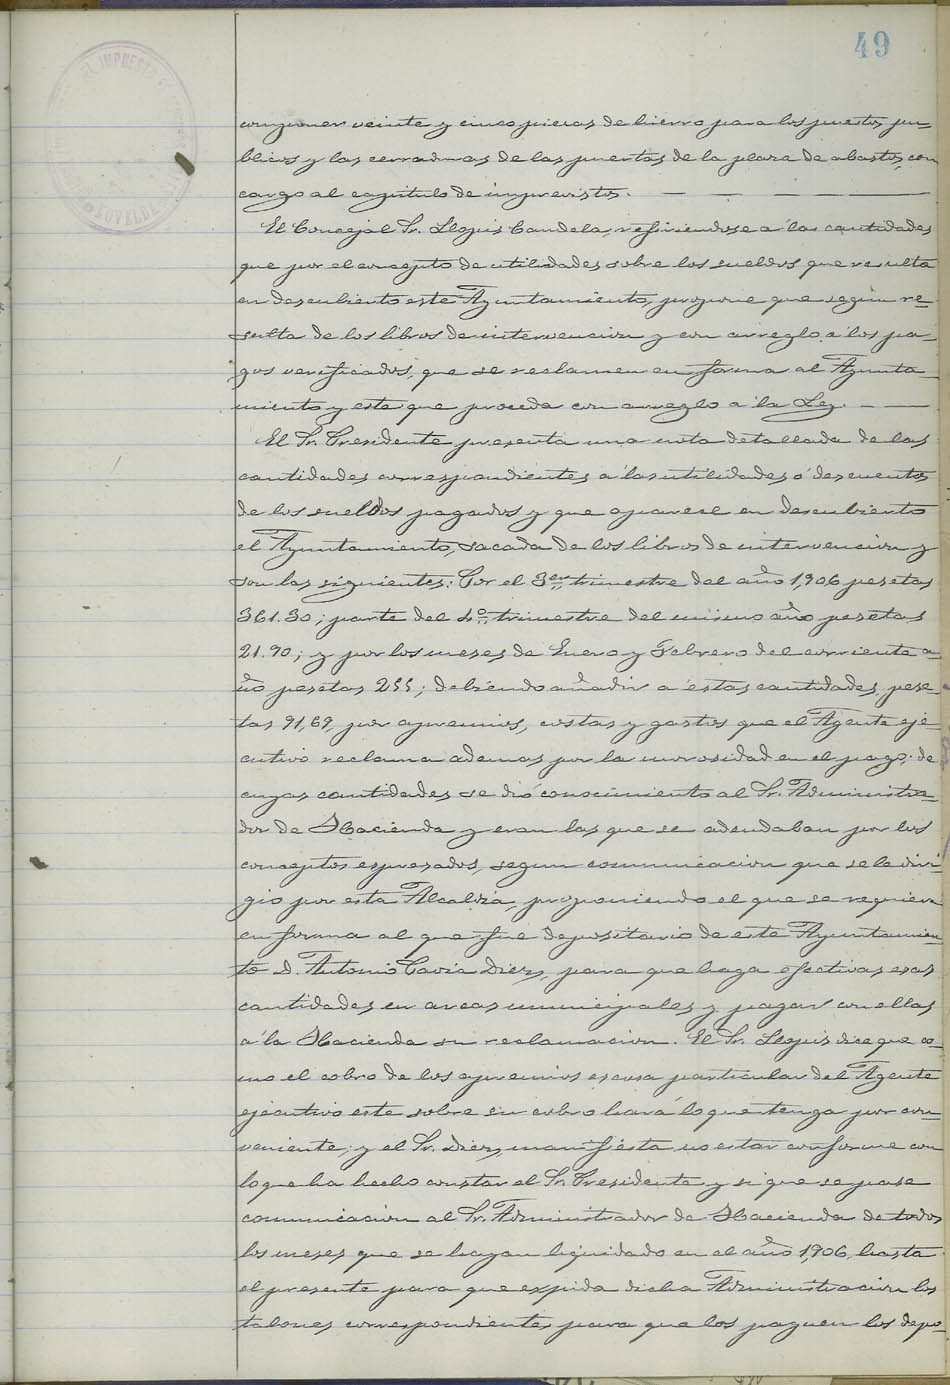 49
componer veinte y cinco piezas de hierro para los puestos pu-
blicos y las cerraduras de las puertas de la plaza de abastos, con
cargo al capitulo de imprevistos.
El Concejal Sr. Llopis Candela, refiriendose á las cantidades
que por el concepto de utilidades sobre los sueldos que resulta
en descubierto este Ayuntamiento, propone que segun re-
sulta de los libros de intervencion y con arreglo á los pa-
gos verificados, que se reclamen en forma al Ayunta-
miento y este que proceda con arreglo a la Ley.
El Sr. Presidente presenta una nota detallada de las
cantidades correspondientes á las utilidades ó descuentos
de los sueldos pagados y que aparece en descubierto
el Ayuntamiento, sacada de los libros de intervencion y
son las siguientes: Por el 3er trimestre del año 1,906 pesetas
361.30; parte del 4º trimestre del mismo año pesetas
21.90; y por los meses de Enero y Febrero del corriente a-
ño pesetas 255; debiendo añadir a estas cantidades, pese-
tas 91,69, por apremios, costas y gastos que el Agente eje-
cutivo reclama ademas por la morosidad en el pago; de
cuyas cantidades se dió conocimiento al Sr. Administra-
dor de Hacienda y eran las que se adeudaban por los
conceptos espresados, segun comunicacion que se le diri-
gio por esta Alcaldia, proponiendo el que se requiera
en forma al que fue depositario de este Ayuntamien-
to D. Antonio Cavia Diez, para que haga efectivas esas
cantidades en arcas municipales y pagar con ellas
á la Hacienda su reclamacion. El Sr. Llopis dice que co-
mo el cobro de los apremios es cosa particular del Agente
ejecutivo este sobre su cobro hará lo que tenga por con-
veniente; y el Sr. Diez, manifiesta no estar conforme con
lo que ha hecho constar el Sr. Presidente y si que se pase
comunicacion al Sr. Administrador de Hacienda de todos
los meses que se hayan liquidado en el año 1,906, hasta
el presente para que expida dicha Administracion los
talones correspondientes para que los paguen los depo-
IMPUESTO
NOVELDA